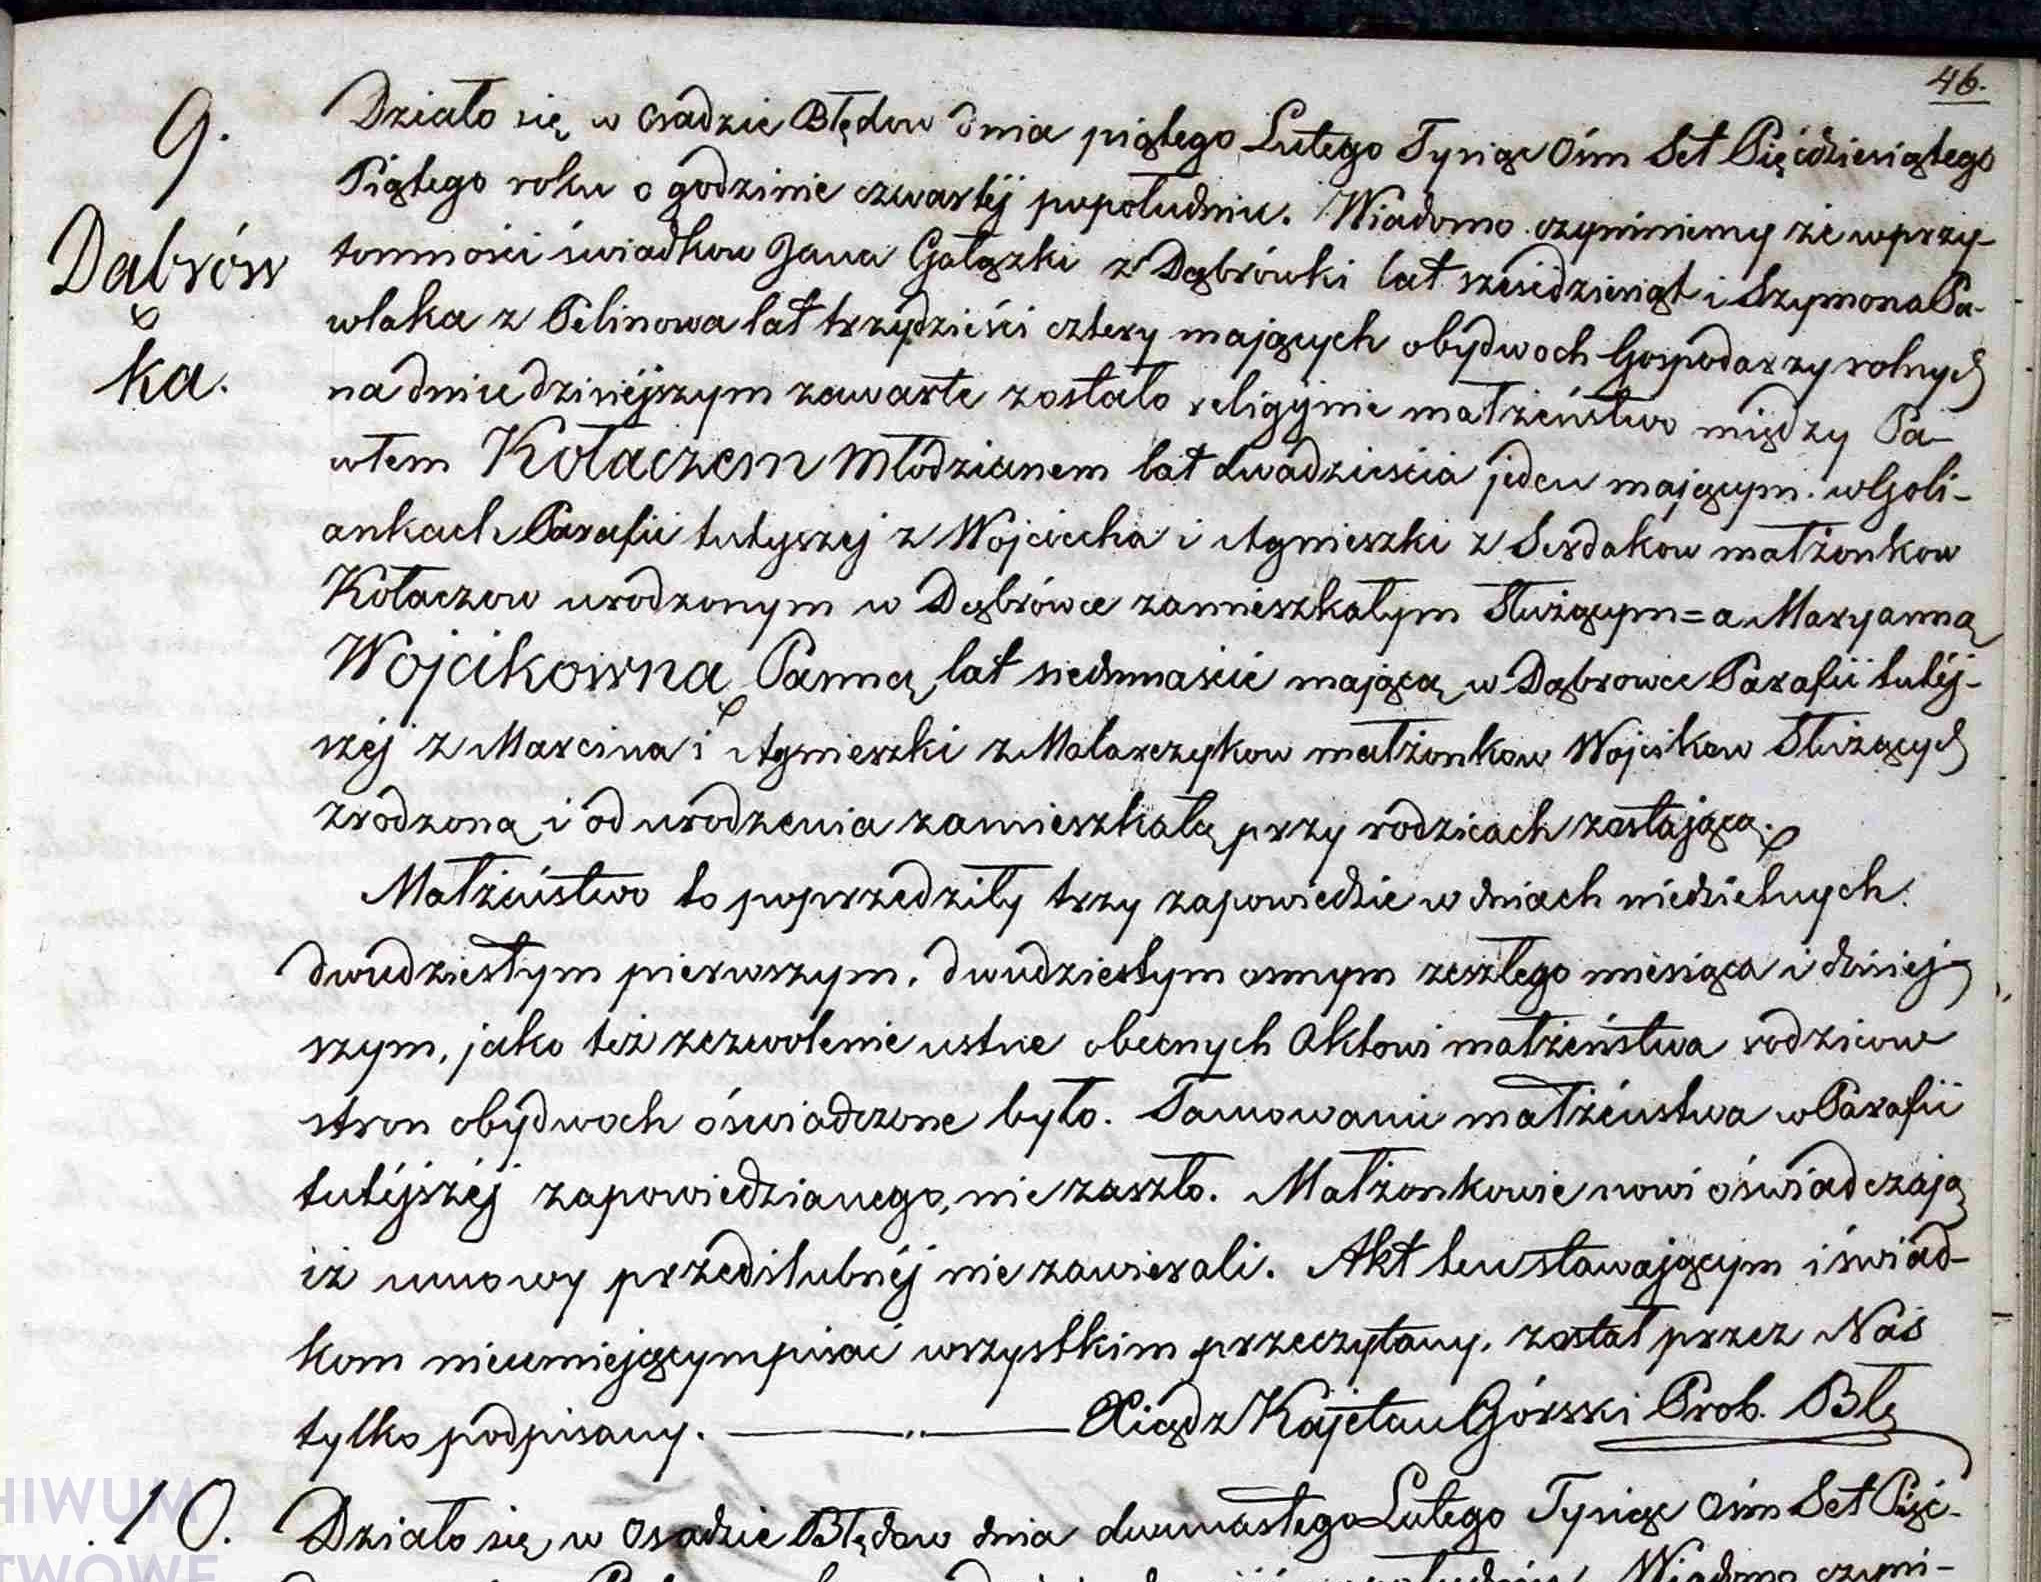 46.
9.
Dąbrów
ka.
Działo się w Osadzie Błędow dnia piątego Lutego Tysiąc Ośm Set Pięćdziesiątego
Piątego roku o godzinie czwartéj popołudniu. Wiadomo czyniniemy że wprzy-
tomności świadkow Jana Gałązki z Dąbrówki lat sześćdziesiąt i Szymona Pa-
wlaka z Pelinowa lat trzydzieści cztery mających obydwoch Gospodarzy rolnych
na dniu dzisiéjszym zawarte zostało religijnie małżeństwo między Pa-
włem Kołaczem Młodzianem lat dwadzieścia jeden mającym. w Goli-
ankach Parafii tutyszej z Wojciecha i Agnieszki z Serdakow małżonkow
Kołaczow urodzonym w Dąbrówce zamieszkałym Służącym = a Maryanną
Wojcikowną Panną lat siedmnaście mającą w Dąbrowce Parafii tutéj-
széj z Marcina i Agnieszki z Malarczykow małżonkow Wojcikow Służących
zrodzoną i od urodzenia zamieszkałą przy rodzicach zostającą.
Małżeństwo to poprzedziły trzy zapowiedzie w dniach niedzielnych.
dwudziestym pierwszym, dwudziestym osmym zeszłego miesiąca i dzisiéj-
szym, jako też zezwolenie ustne obecnych Aktowi małżeństwa rodzicow
stron obydwoch óświadczone było. Tamowanie małżeństwa w Parafii
tutéjszéj zapowiedzianego, nie zaszło. Małżonkowie nowi óświadczają
iż umowy przedślubnéj nie zawierali. Akt ten stawającym i świad-
kom nieumiejącym pisać wszystkim przeczytany, został przez Nas
tylko podpisany. Xiądz Kajetan Górski Prob. Błę
10.
Działo się w Osadzie Błędow dnia dwunastego Lutego Tysiąc Ośm Set Pięć-
Wiadomo czyni-
HIWUM
TWOWE